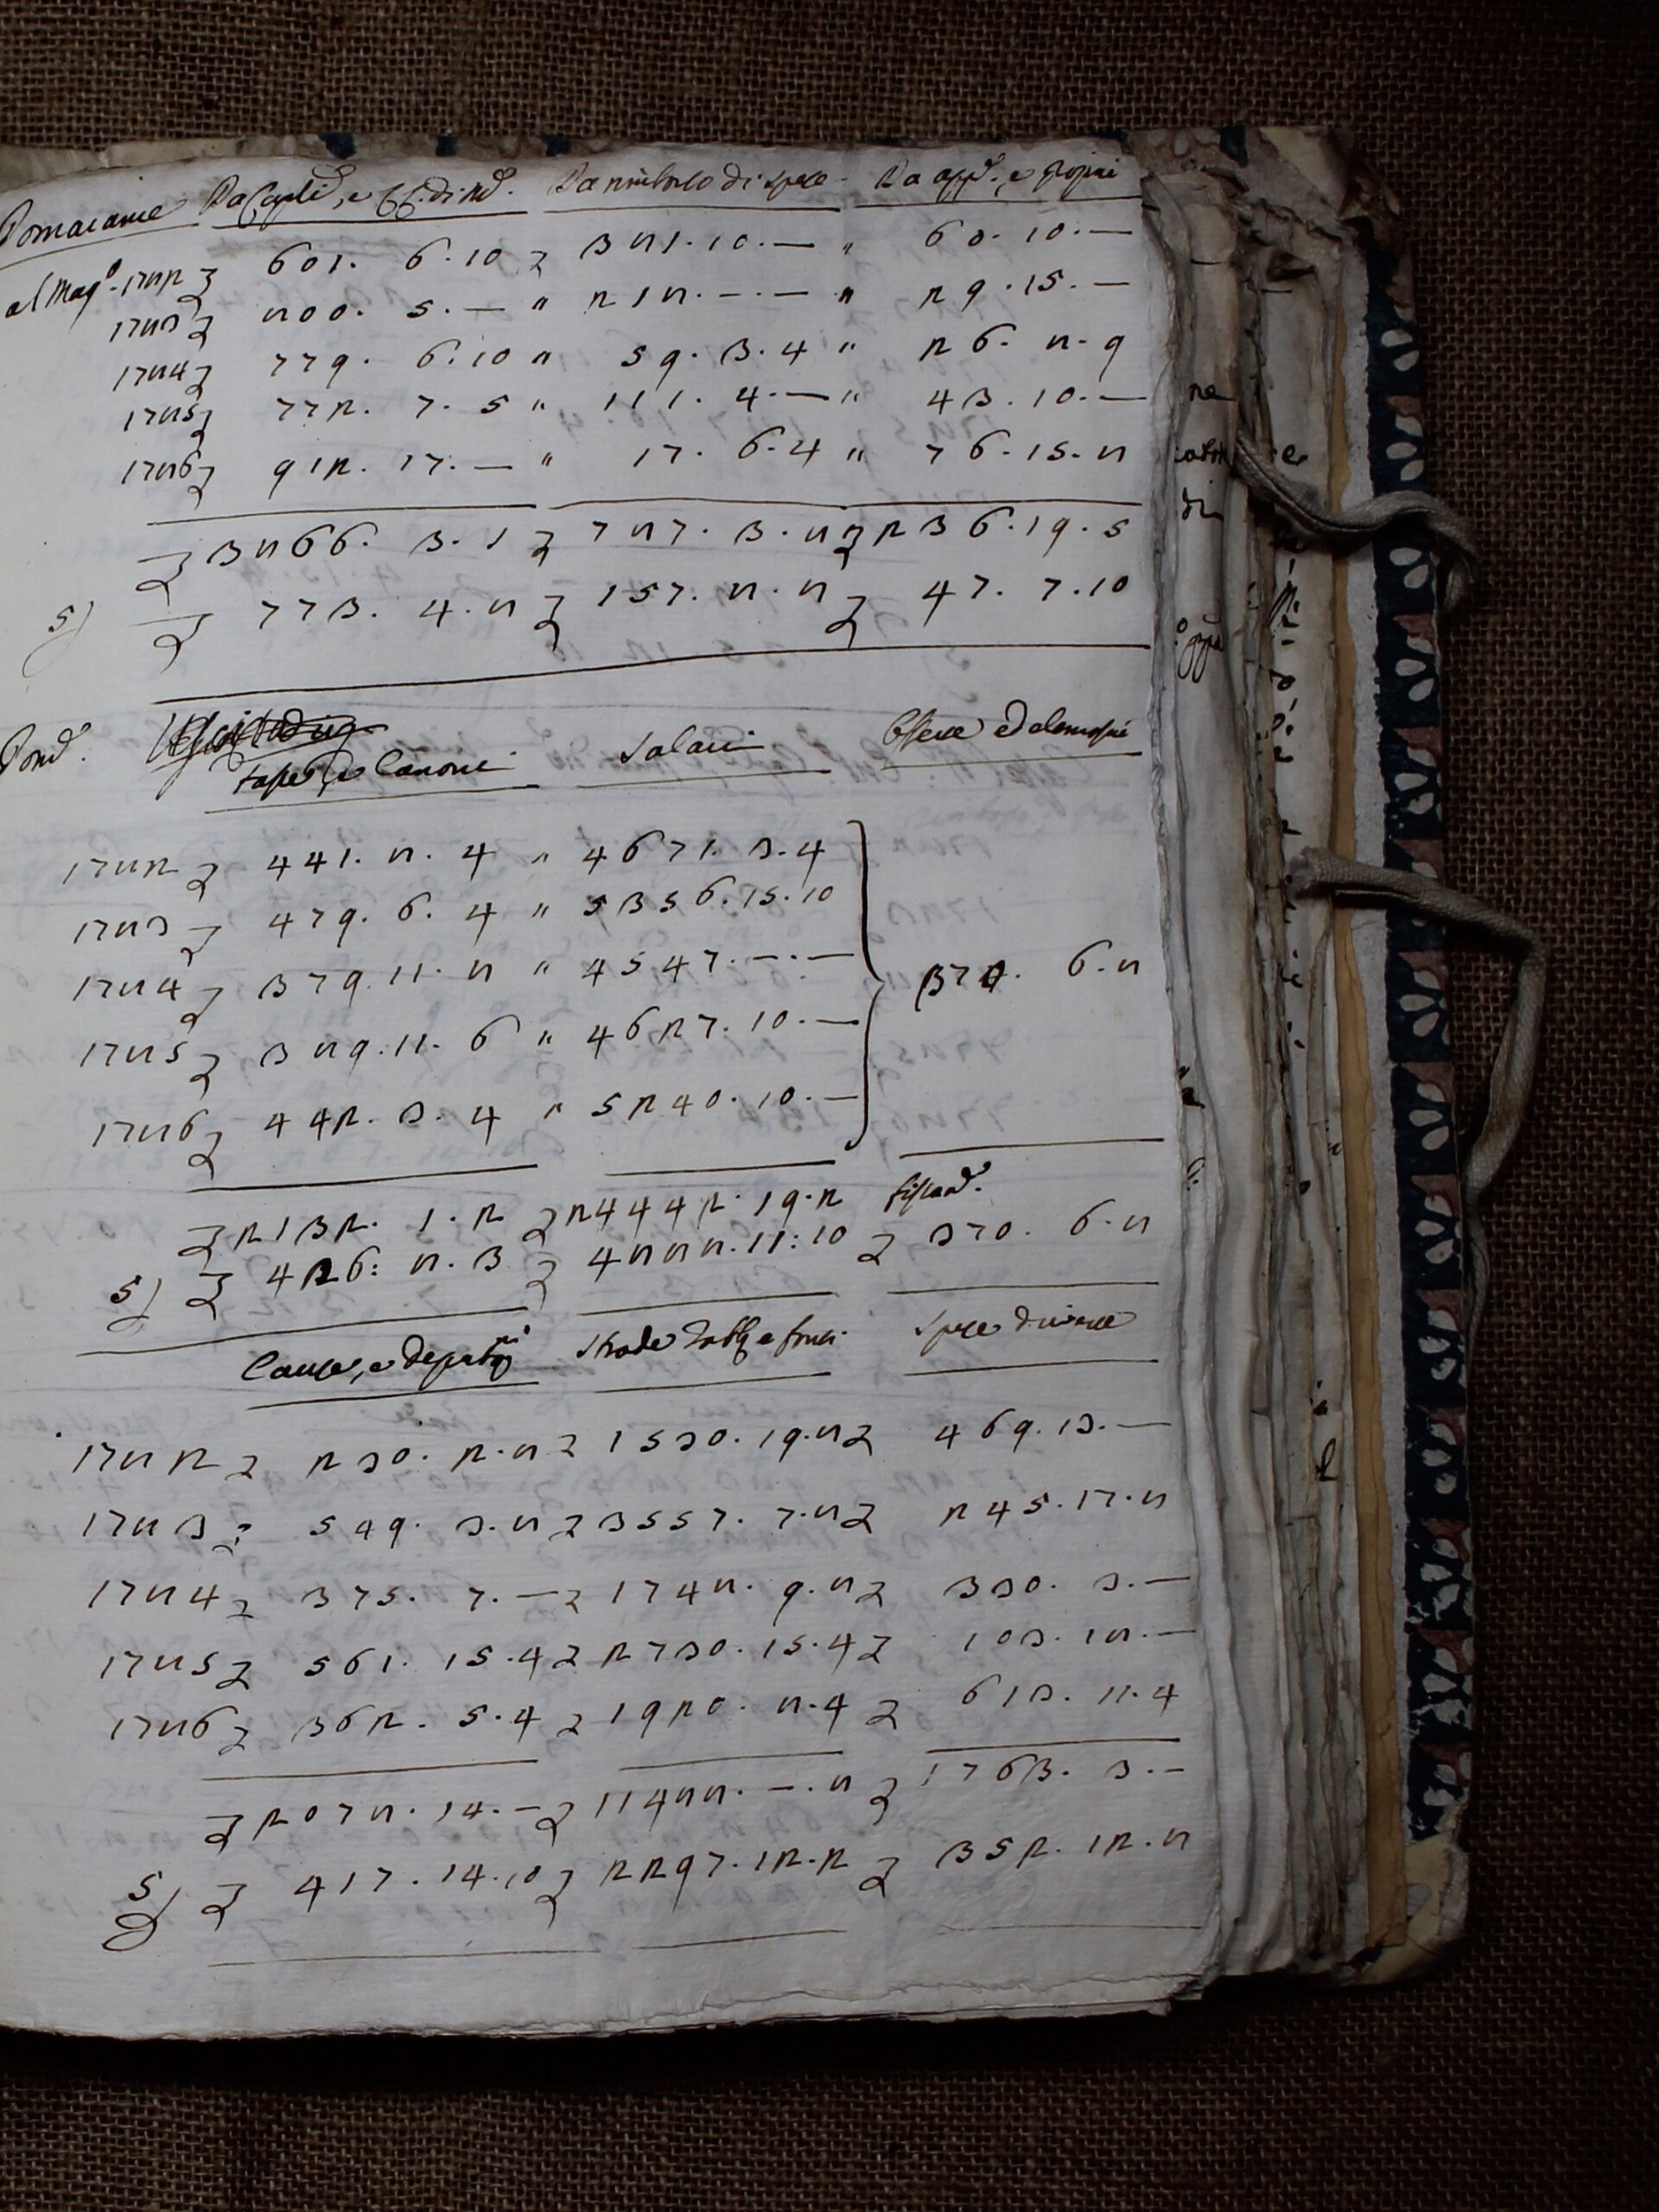 Pomarance Da Capli, e Off. di Nd. Da rimborso di spese Da app., e Propri
al Mag.o 1782 £ 601. 6. 10 £ 381. 10. — " 60. 10. —
1783 £ 800. 5. — " 218. —. — " 29. 15. —
1784 £ 779. 6. 10 " 59. 3. 4 " 26. 8. 9
1785 £ 772. 7. 5 " 111. 4. — " 43. 10. —
1786 £ 912. 17. — " 17. 6. 4 " 76. 15. 8
£ 3866. 3. 1 £ 787. 3. 8 £ 236. 19. 5
5) £ 773. 4. 8 £ 157. 8. 8 £ 47. 7. 10
Pomd.
Tasse, e Canoni Salari ed elemosine
1782 £ 441. 8. 4 " 4671. 3. 4
1783 £ 479. 6. 4 " 5356. 15. 10
1784 £ 379. 11. 8 " 4547. —. — 370. 6. 8
1785 £ 389. 11. 6 " 4627. 10. —
1786 £ 442. 3. 4 " 5240. 10. —
£ 2132. 1. 2 £ 24442. 19. 2
5) £ 426: 8. 3 £ 4888. 11: 10 £ 370. 6. 8
Cause, e deputni Strade Fabb. e fonti Spese diverse
1782 £ 230. 2. 8 £ 1530. 19. 8 £ 469. 13. —
1783 £ 549. 3. 8 £ 3557. 7. 8 £ 245. 17. 8
1784 £ 375. 7. — £ 1748. 9. 8 £ 330. 3. —
1785 £ 561. 15. 4 £ 2730. 15. 4 £ 103. 18. —
1786 £ 362. 5. 4 £ 1920. 8. 4 £ 613. 11. 4
£ 2078. 14. — £ 11488. —. 8 £ 1763. 3. —
5) £ 417. 14. 10 £ 2297. 12. 2 £ 352. 12. 8